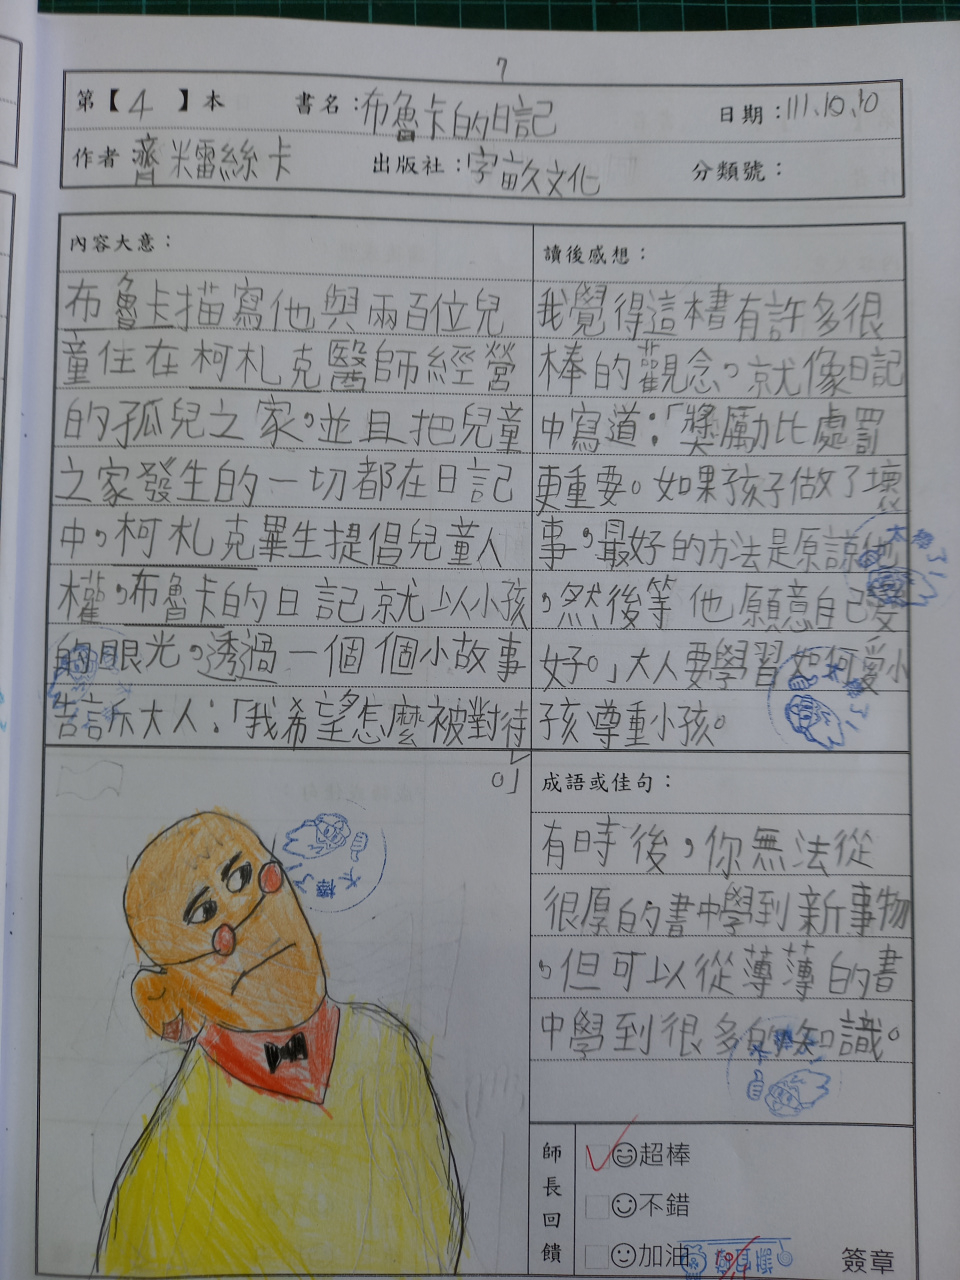 7
第【4】本 書名:布魯卡的日記 日期:111.10.10
作者 齊米雷絲卡 出版社:字畝文化 分類號:
內容大意:
布魯卡描寫他與兩百位兒
童住在柯札克醫師經營
的孤兒之家,並且把兒童
之家發生的一切都在日記
中,柯札克畢生提倡兒童人
權,布魯卡的日記就以小孩
的眼光,透過一個個小故事
告訴大人:「我希望怎麼被對待
。」
讀後感想:
我覺得這本書有許多很
棒的觀念,就像日記
中寫道:「獎勵比處罰
更重要。如果孩子做了壞
事,最好的方法是原諒他
,然後等他願意自己變
好。」大人要學習如何愛小
孩尊重小孩。
成語或佳句:
有時後,你無法從
很厚的書中學到新事物
,但可以從薄薄的書
中學到很多的知識。
太棒了!
太棒了!
太棒了
師長回饋
超棒
不錯
加油
簽章